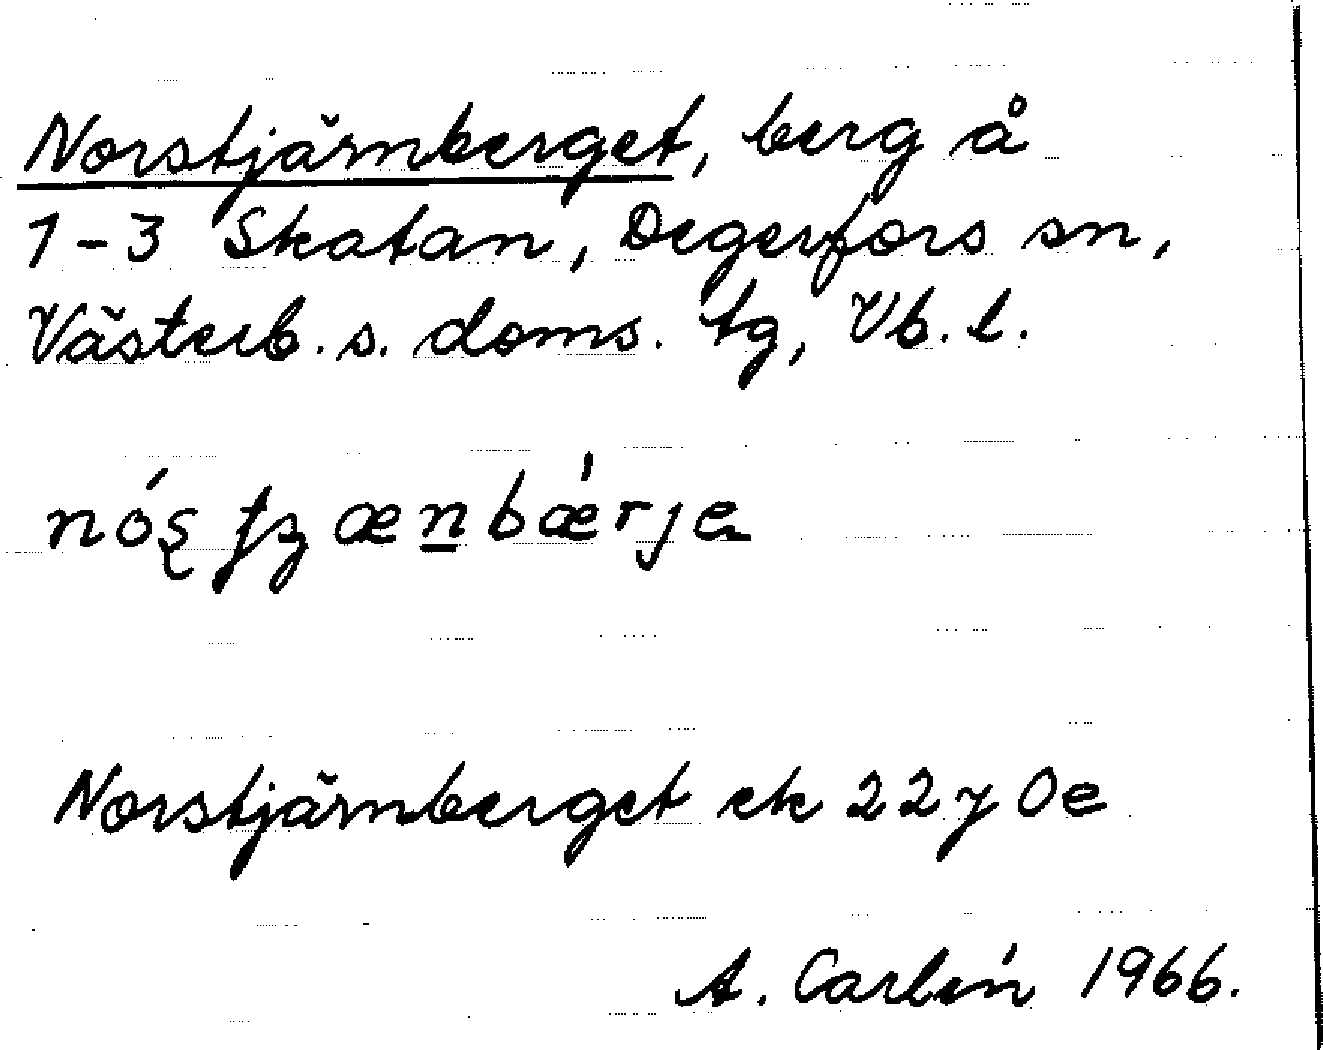 Norstjärnberget, berg å
1-3 Skatan, Degerfors sn,
Västerb. s. doms. tg, Vb. l.
Norstjärnberget ek 22 y 0e
A. Carlin 1966.